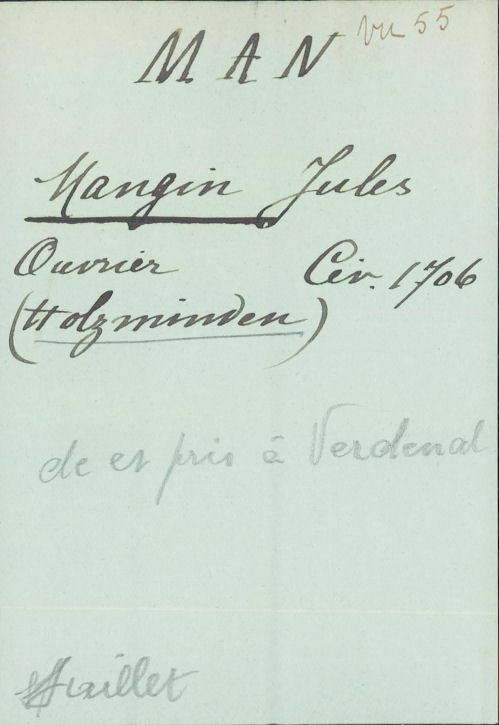 vu 55
MAN
Mangin Jules
Ouvrier Civ. 1706
(Holzminden)
de et pris à Verdenal